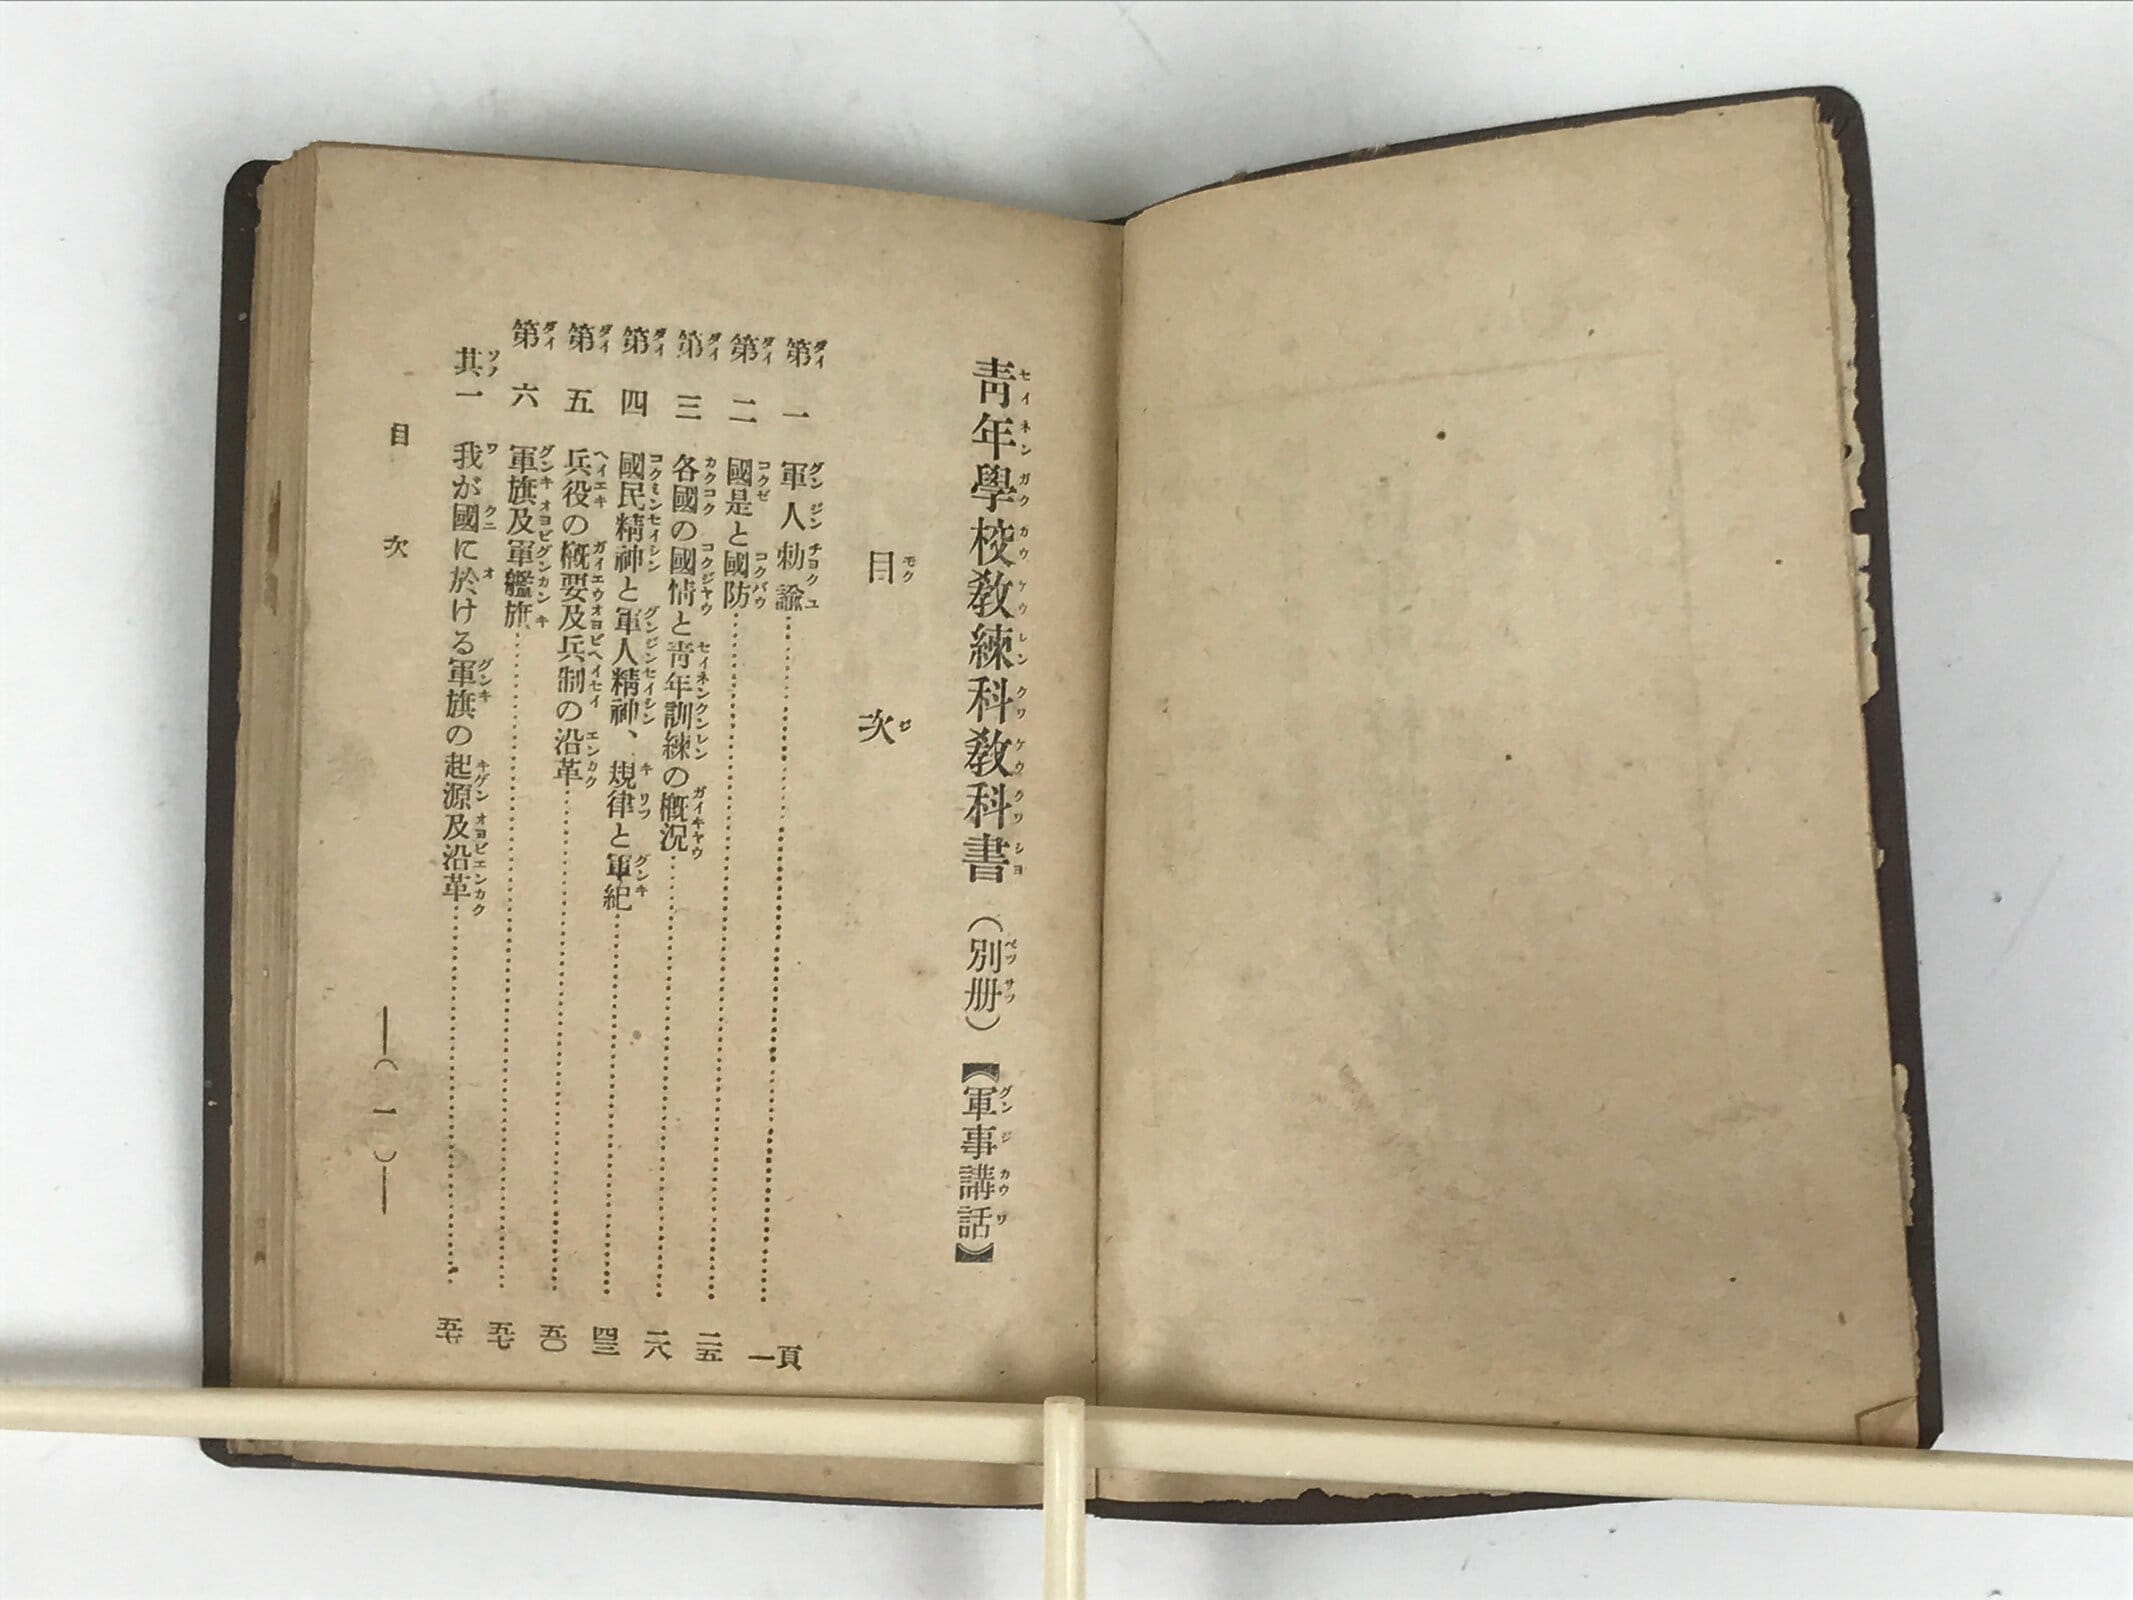 青年學校教練科教科書（別册）【軍事講話】
目次
第一 軍人勅諭 一頁
第二 國是と國防 二五
第三 各國の國情と青年訓練の概況 二八
第四 國民精神と軍人精神、規律と軍紀 四三
第五 兵役の概要及兵制の沿革 五〇
第六 軍旗及軍艦旗 五七
其一 我が國に於ける軍旗の起源及沿革 五七
目次 （一）